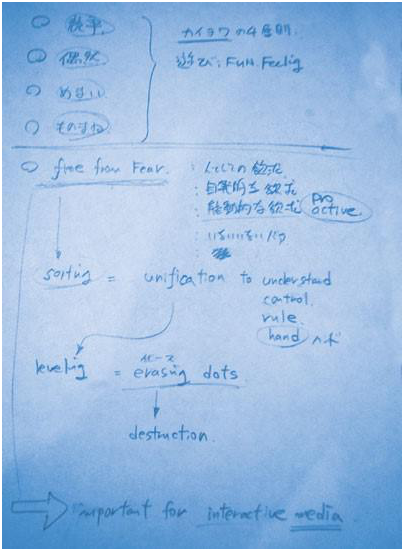 ○ 競争
○ 偶然
○ めまい
○ ものまね
カイヨワの4原則.
遊び: FUN. Feeling
○ free from Fear.
: 人としての欲求
: 自発的な欲求
: 能動的な欲求 pro active.
: いないいないバァ
sorting = unification to understand
control.
rule.
hand
leveling = erasing dots
destruction.
important for interactive media.